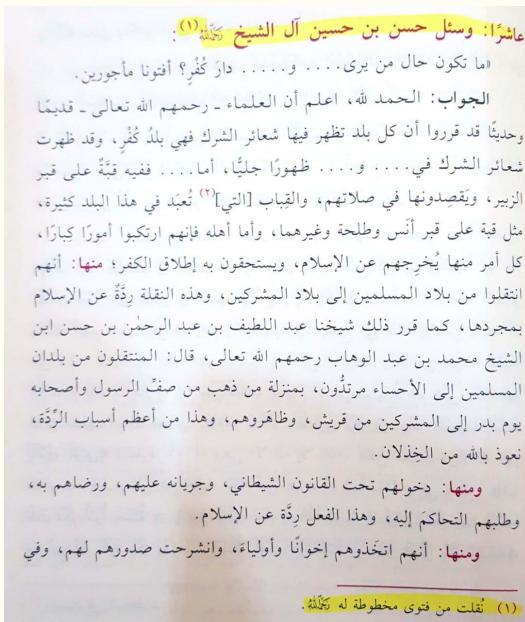 عاشرًا: وسئل حسن بن حسين آل الشيخ رَحِمَهُ اللهُ (١):
«ما تكون حال من يرى.... و..... دارَ كُفْرٍ؟ أفتونا مأجورين.
الجواب: الحمد لله، اعلم أن العلماء ـ رحمهم الله تعالى ـ قديمًا
وحديثًا قد قرروا أن كل بلد تظهر فيها شعائر الشرك فهي بلدُ كُفْرٍ، وقد ظهرت
شعائر الشرك في.... و.... ظهورًا جليًّا، أما.... ففيه قبَّةٌ على قبر
الزبير، ويَقصِدونها في صلاتهم، والقِباب [التي](٢) تُعبَد في هذا البلد كثيرة،
مثل قبة على قبر أنَس وطلحة وغيرهما، وأما أهله فإنهم ارتكبوا أمورًا كِبارًا،
كل أمر منها يُخرِجهم عن الإسلام، ويستحقون به إطلاق الكفر؛ منها: أنهم
انتقلوا من بلاد المسلمين إلى بلاد المشركين، وهذه النقلة رِدَّةٌ عن الإسلام
بمجردها، كما قرر ذلك شيخنا عبد اللطيف بن عبد الرحمٰن بن حسن ابن
الشيخ محمد بن عبد الوهاب رحمهم الله تعالى، قال: المنتقلون من بلدان
المسلمين إلى الأحساء مرتدُّون، بمنزلة من ذهب من صفِّ الرسول وأصحابه
يوم بدر إلى المشركين من قريش، وظاهَروهم، وهذا من أعظم أسباب الرِّدَّة،
نعوذ بالله من الخِذلان.
ومنها: دخولهم تحت القانون الشيطاني، وجريانه عليهم، ورضاهم به،
وطلبهم التحاكمَ إليه، وهذا الفعل رِدَّة عن الإسلام.
ومنها: أنهم اتخَذوهم إخوانًا وأولياءَ، وانشرحت صدورهم لهم، وفي
(١) نُقلت من فتوى مخطوطة له رَحِمَهُ اللهُ.